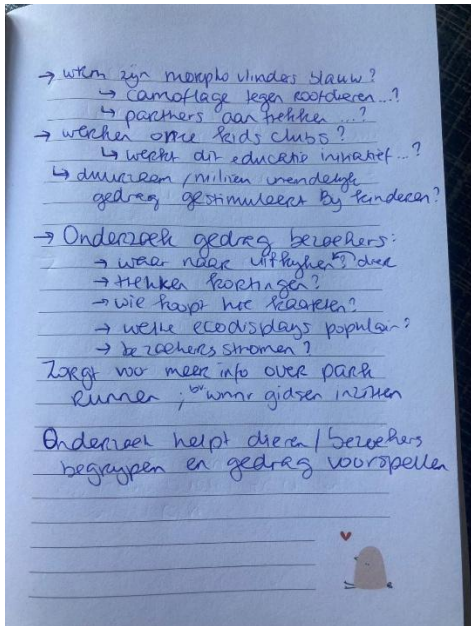 → wrm zijn morpho vlinders blauw?
↳ camoflage tegen roofdieren...?
↳ partners aan trekken ...?
→ werken onze kids clubs?
↳ werkt dit educatie initiatief...?
↳ duurzaam / milieu vriendelijk
gedrag gestimuleert by kinderen?
→ Onderzoek gedrag bezoekers:
→ waar naar uitkijken? dier
→ trekken kortingen?
→ wie koopt hoe kaarten?
→ welke ecodisplays populair?
→ bezoekers stromen?
Zorgt voor meer info over park
runnen ; bv wnnr gidsen inzetten
Onderzoek helpt dieren / bezoekers
begrypen en gedrag voorspellen